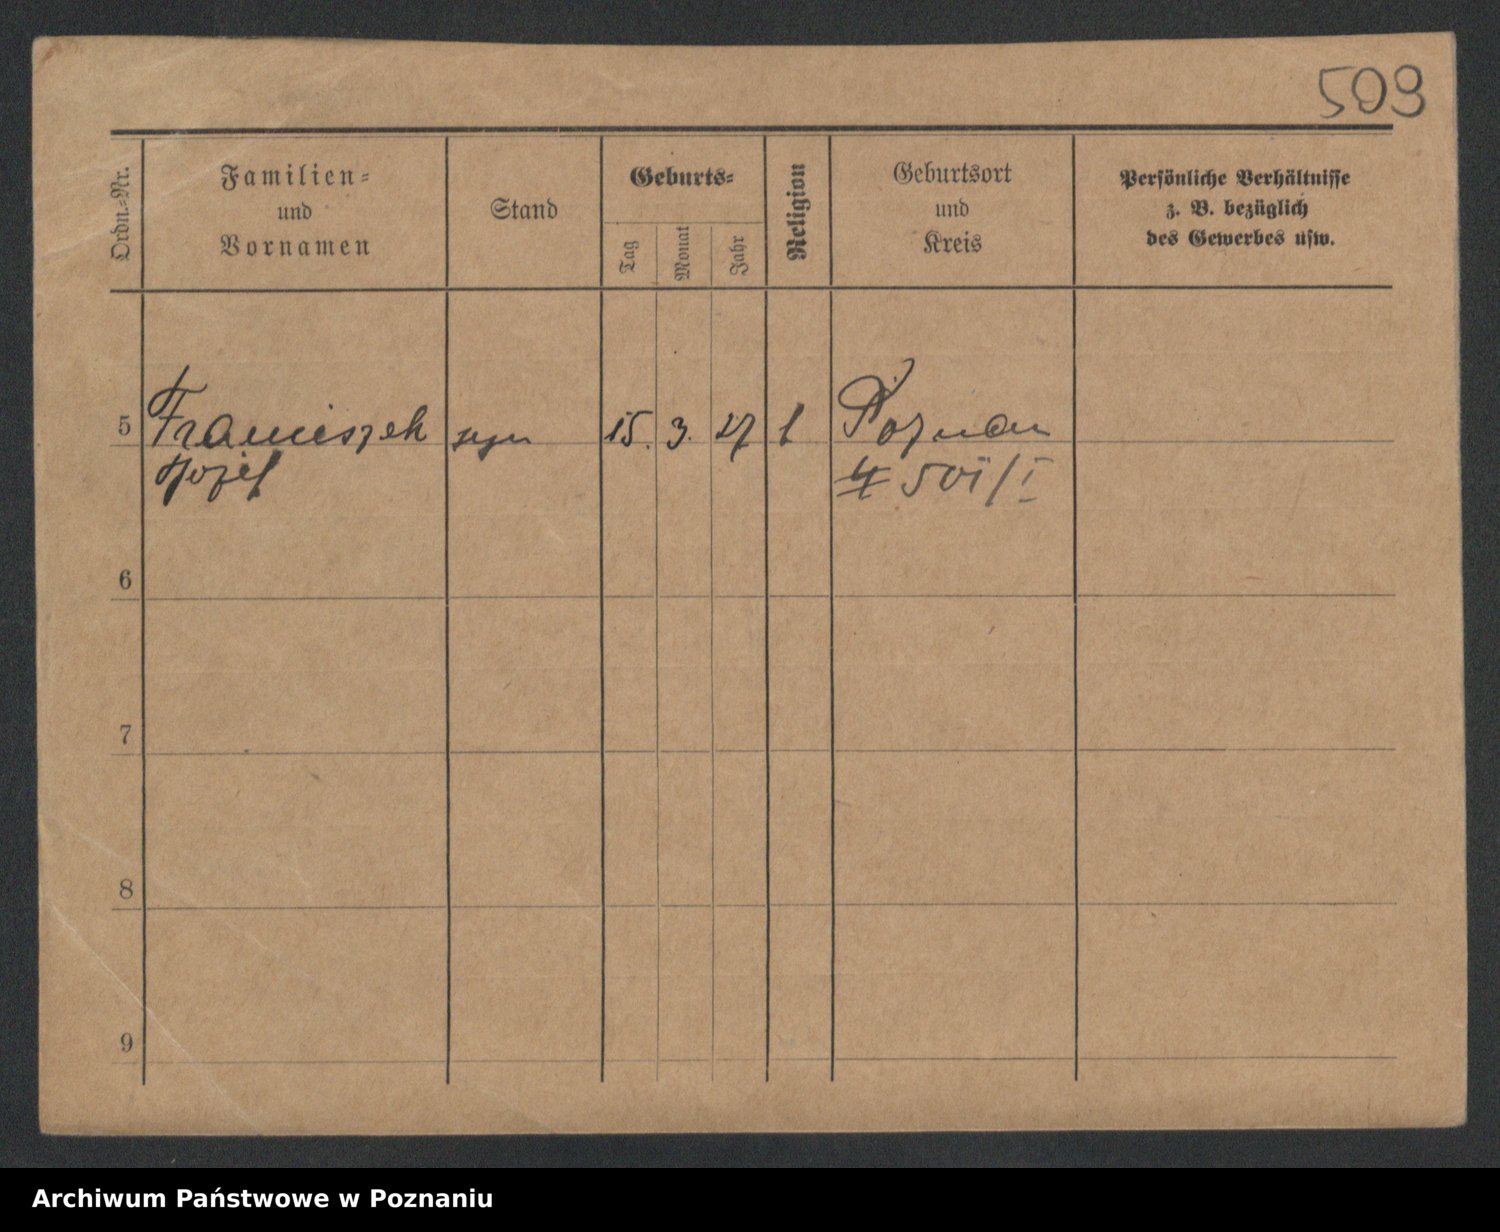 509
Ordn.-Nr.
Familien-
und
Vornamen
Stand
Geburts-
Tag
Monat
Jahr
Religion
Geburtsort
und
Kreis
Persönliche Verhältnisse
z. B. bezüglich
des Gewerbes usw.
5 Franciszek syn 15. 3. 27 Poznań
Józef 501/I
6
7
8
9
Archiwum Państwowe w Poznaniu